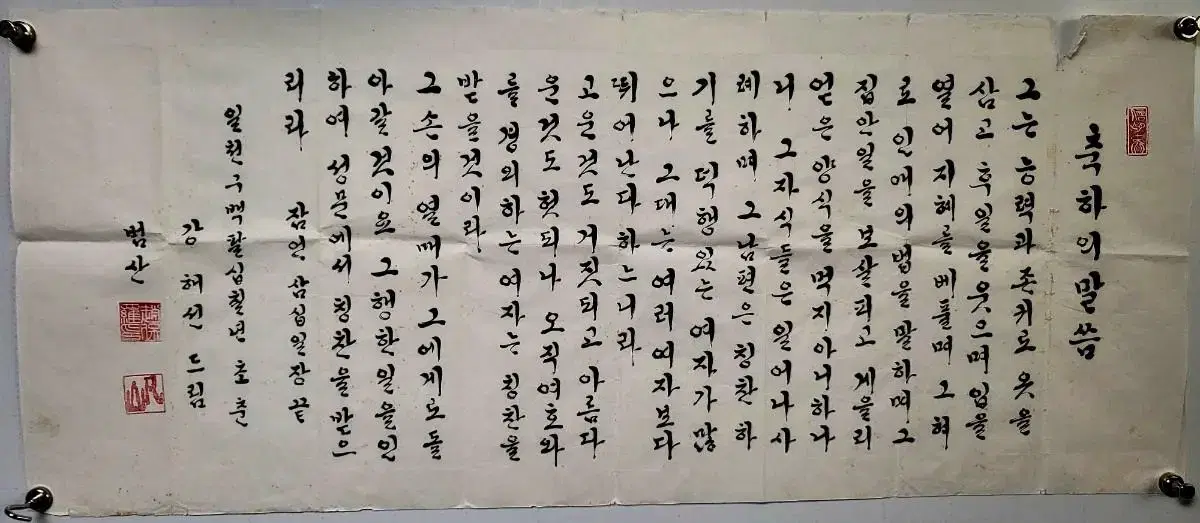 축하의말씀
그는 능력과 존귀로 옷을
삼고 후일을 웃으며 입을
열어 지혜를 베풀며 그 혀
로 인애의 법을 말하며 그
집안일을 보살피고 게을리
얻은 양식을 먹지 아니하나
니 그 자식들은 일어나 사
례하며 그 남편은 칭찬하
기를 덕행있는 여자가 많
으나 그대는 여러 여자보다
뛰어난다 하느니라
고운것도 거짓되고 아름다
운것도 헛되나 오직 여호와
를 경외하는 여자는 칭찬을
받을것이라
그 손의 열매가 그에게로 돌
아갈것이요 그 행한 일을 인
하여 성문에서 칭찬을 받으
리라 잠언 삼십일장 끝
일천구백팔십칠년 초춘
강 드림
범산